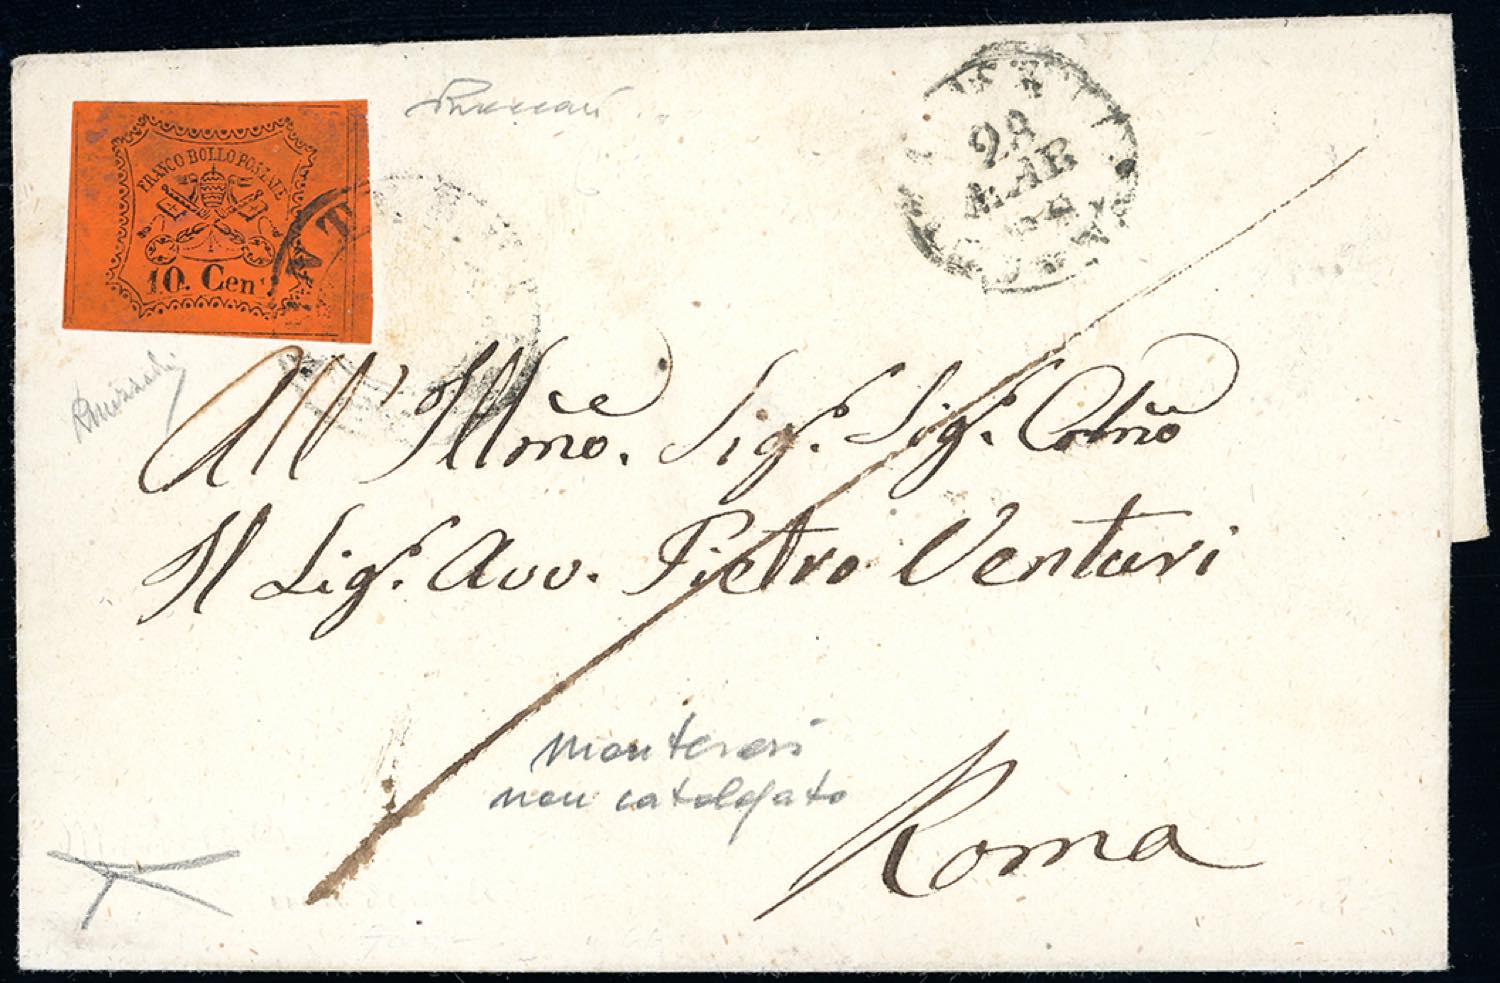 FRANCO BOLLO POSTALE
10. Cen
NT
28
MAR
All' Illmo. Sig.r Sig.r Colmo
Il Sig.r Avv. Pietro Venturi
Monterosi
non catalogato
Roma